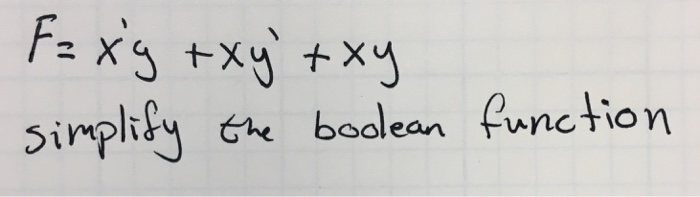 F= x'y +xy' +xy
simplify the boolean function